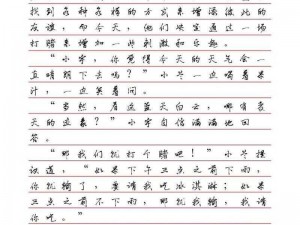 找到各种各样的方式来增添彼此的
友谊，而今天，他们决定通过一场
打赌来增加一些刺激和乐趣。
“小李，你觉得今天的天气会一
直晴朗下去吗？”小牛一边喝着果
汁，一边笑着问。
“当然，看这蓝天白云，哪有变
天的迹象？”小李自信满满地回
答。
“那我们就打个赌吧！”小牛提
议道，“如果下午三点之前下雨，
你就输了，要请我吃冰淇淋；如果
三点之前不下雨，我就输，我请
你吃。”